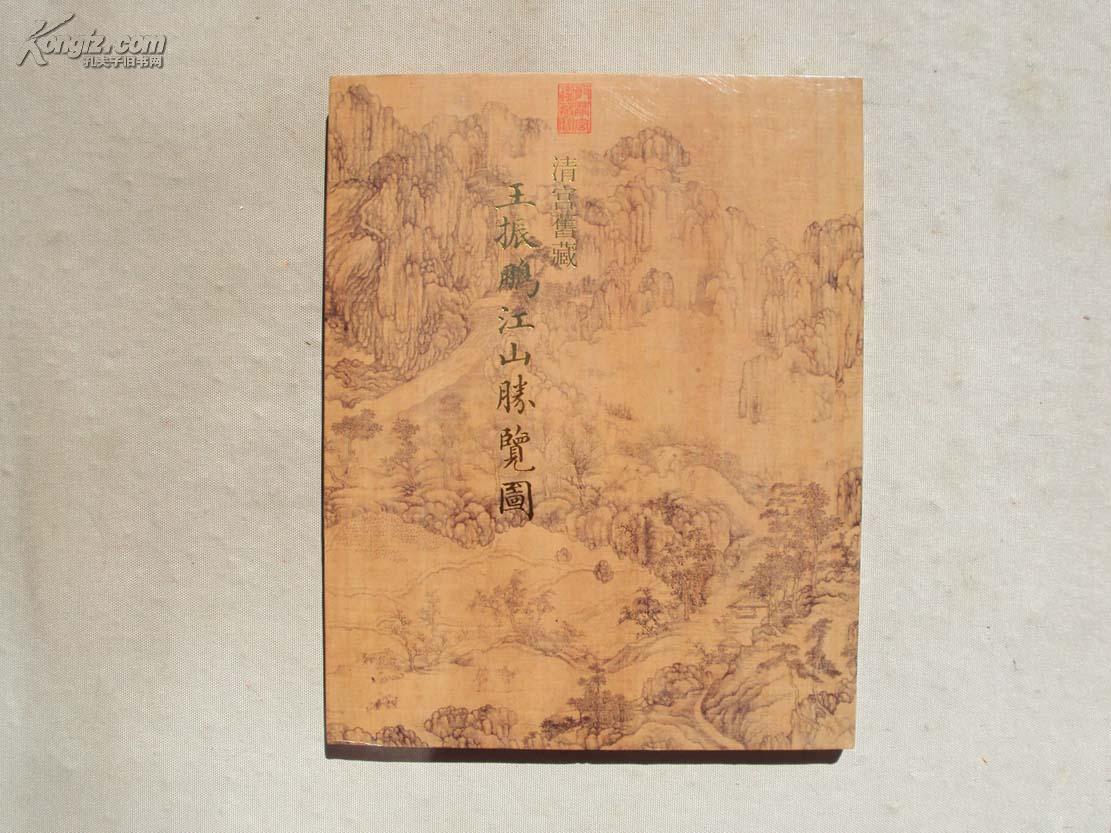 Kongfz.com
孔夫子旧书网
清宫舊藏
王振鹏江山勝覽圖